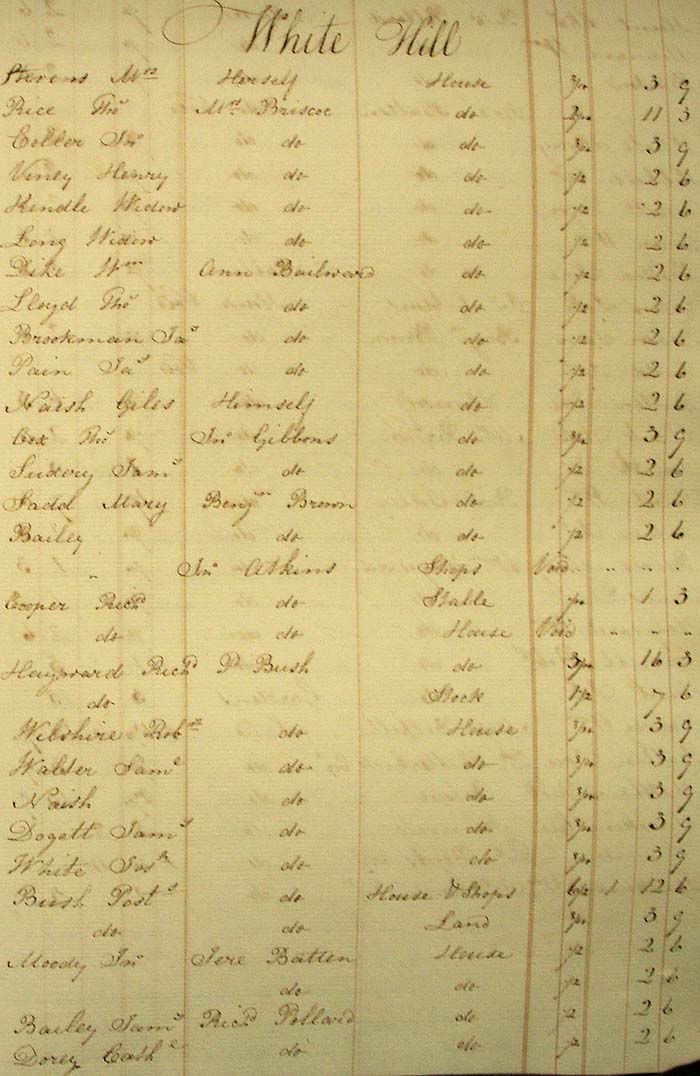 White Hill
Stevens Mrs Herself House 3 9
Rice Thos Mrs Briscoe do 11 3
Coller Jno do do 3 9
Viney Henry do do 2 6
Kendle Widow do do 2 6
Long Widow do do 2 6
Dike Wm Ann Bailward do 2 6
Lloyd Thos do do 2 6
Brookman Jas do do 2 6
Pain Jas do do 2 6
Naish Giles Himself do 2 6
Cox Thos Jno Gibbons do 3 9
Sudery Saml do do 2 6
Ladd Mary Benjn Brown do 2 6
Bailey do do 2 6
" Jno Atkins Shops Void " " "
Cooper Richd do Stable 1 3
do do House Void " " "
Heyward Richd P Bush do 16 3
do Stock 7 6
Wilshire Robtt do House 3 9
Walter Saml do do 3 9
Naish do do 3 9
Dogett Saml do do 3 9
White Josh do do 3 9
Bush Posts do House & Shops 1 12 6
do do Land 3 9
Moody Jno Jere Batten House 2 6
do do 2 6
Bailey Saml Richd Pollard do 2 6
Dorey Cathe do do 2 6